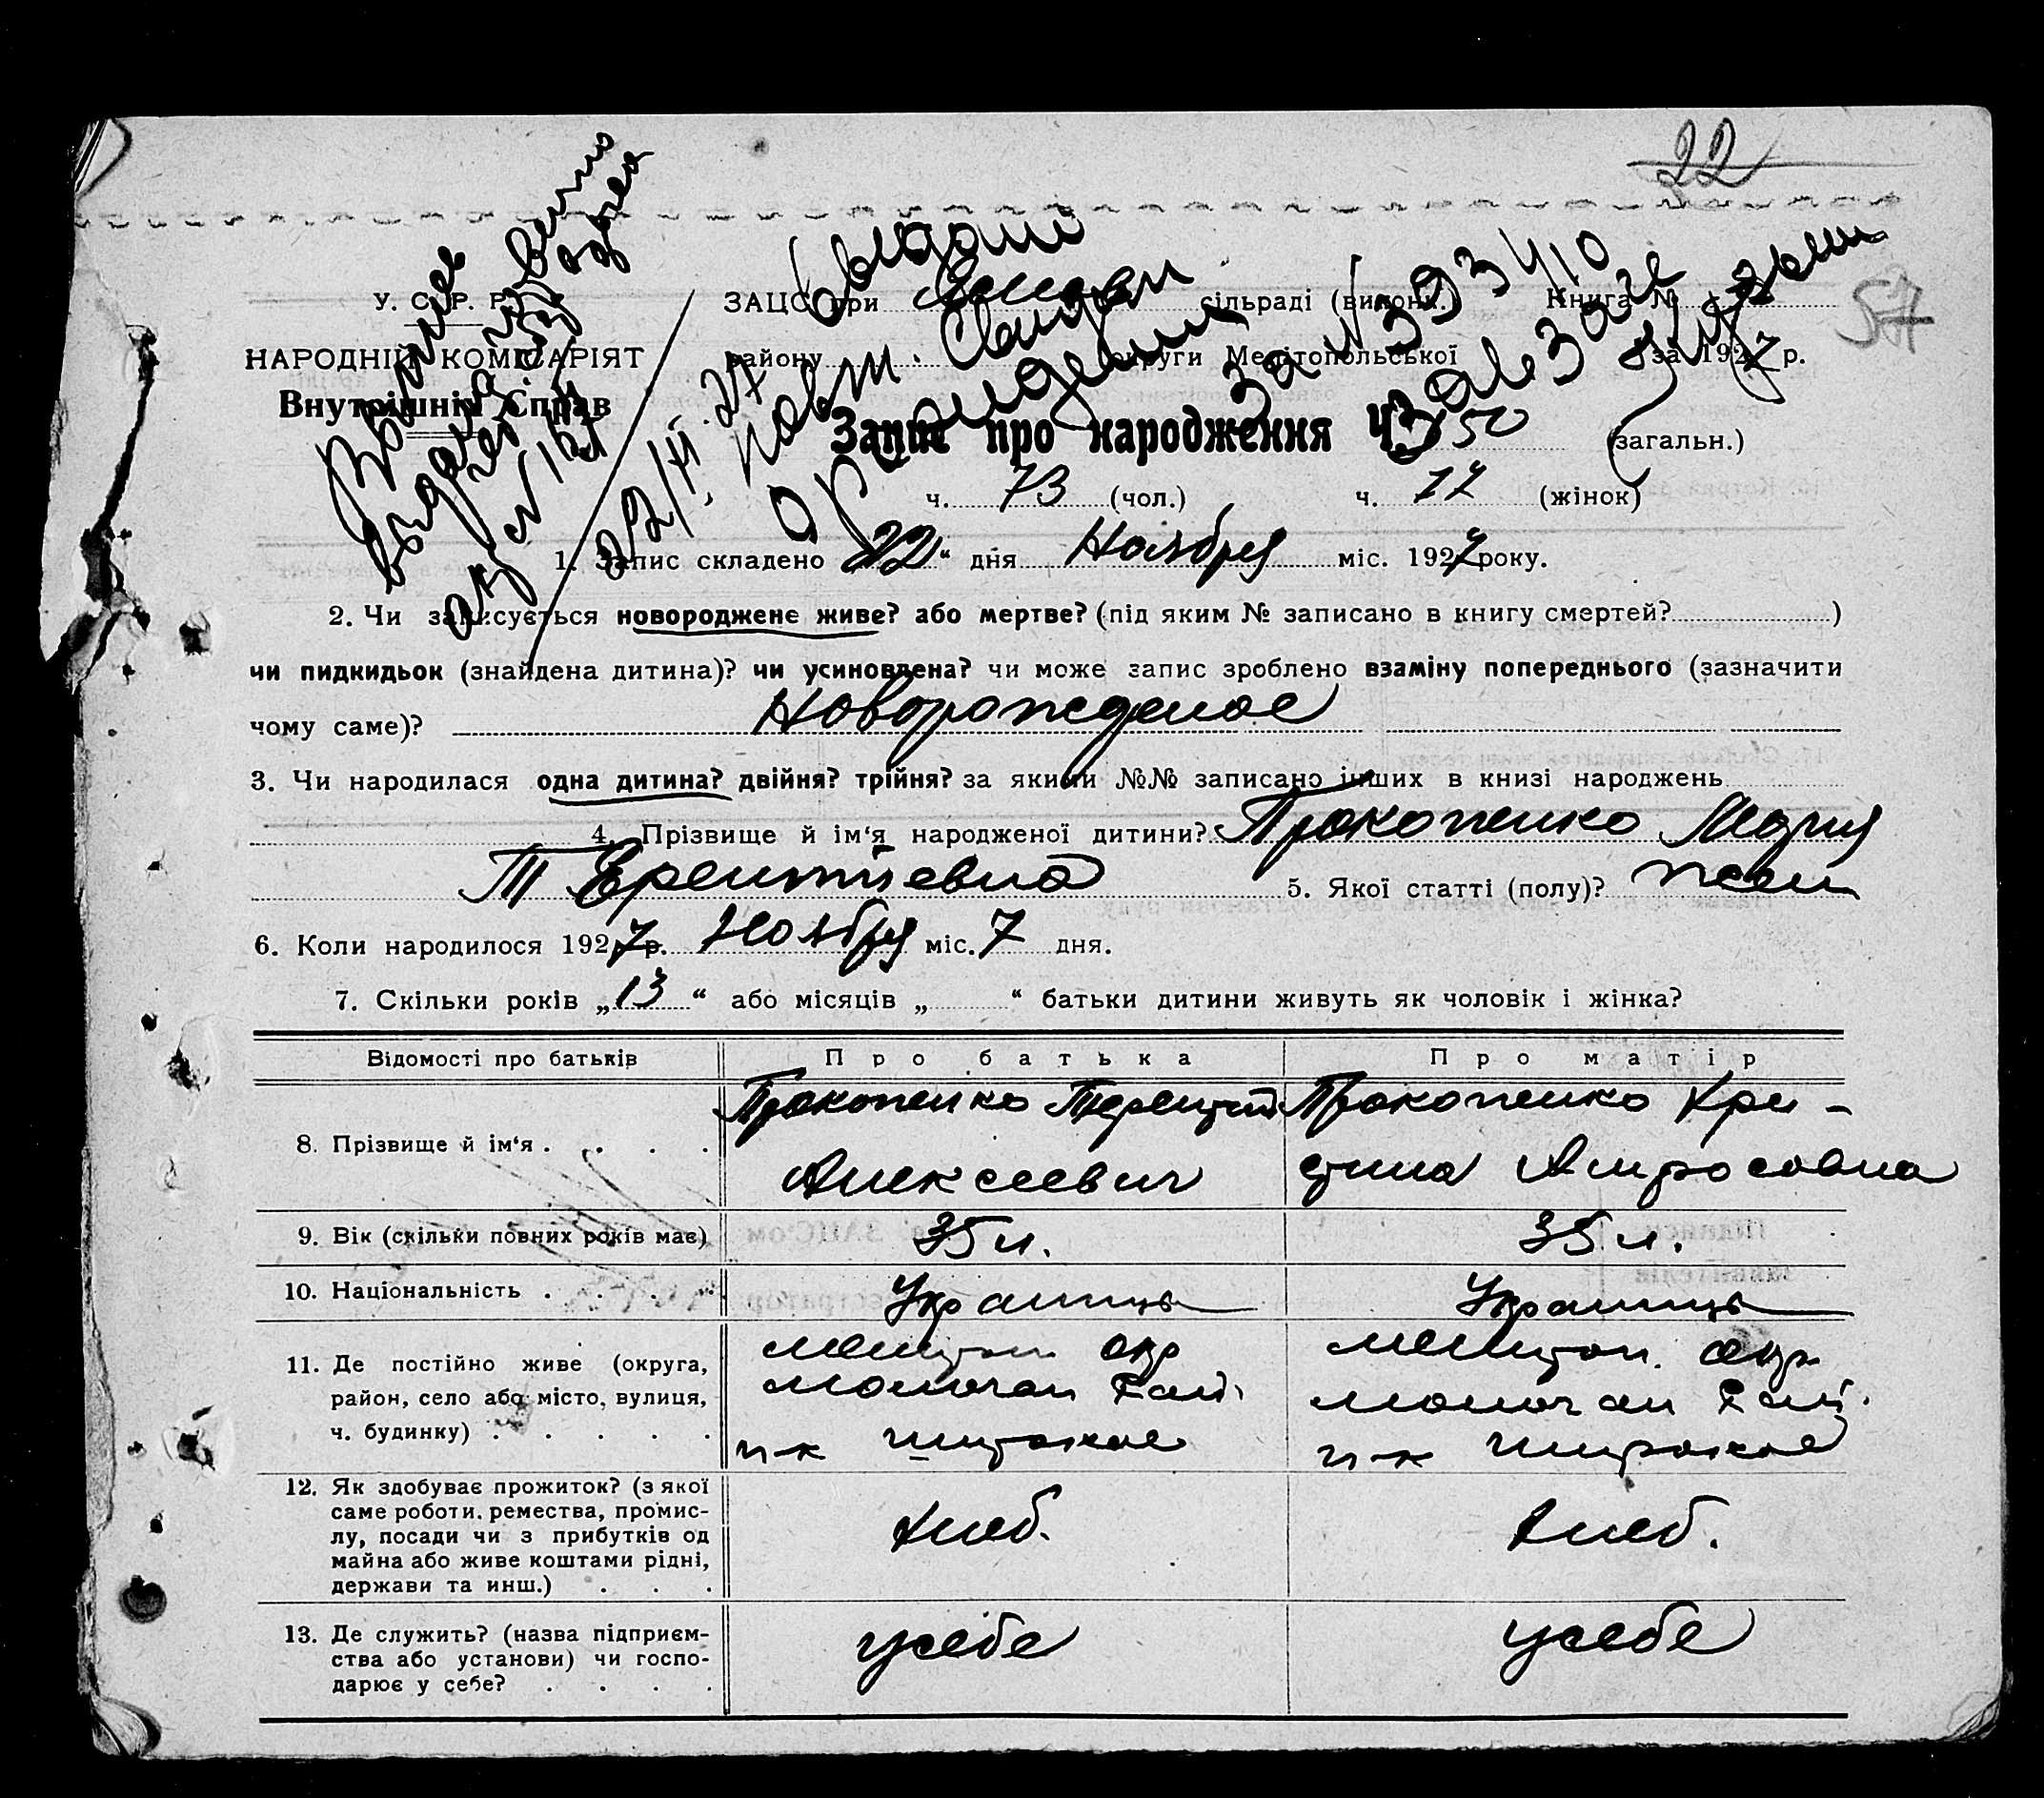 22
57
У. С. Р. Р.
НАРОДНІЙ КОМІСАРІЯТ
Внутрішніх Справ
ЗАЦС при сільраді (викони.) Книга №
району округи Мелітопольської за 1927 р.
Запис про народження Ч. 150 (загальн.)
ч. 73 (чол.) ч. 77 (жінок)
1. Запис складено „22“ дня Ноября міс. 1927 року.
2. Чи записується новороджене живе? або мертве? (під яким № записано в книгу смертей? )
чи пидкидьок (знайдена дитина)? чи усиновлена? чи може запис зроблено взаміну попереднього (зазначити
чому саме)? Новорожденое
3. Чи народилася одна дитина? двійня? трійня? за якими №№ записано інших в книзі народжень
4. Прізвище й ім‘я народженої дитини? Прокопенко Мария
Терентиевна 5. Якої статті (полу)? жен
6. Коли народилося 1927 р. Ноября міс. 7 дня.
7. Скільки років „13“ або місяців „ “ батьки дитини живуть як чоловік і жінка?
Відомості про батьків Про батька Про матір
8. Прізвище й ім‘я . . . . Прокопенко Терентий Прокопенко Хри-
Алексеевич стина Амросовна
9. Вік (скільки повних років має) 35 л. 35 л.
10. Національність . . . . Украинць Украинць
11. Де постійно живе (округа, Мелитоп. окр Мелитоп. окр.
район, село або місто, вулиця, Молочан Рай. Молочан Рай.
ч. будинку) . . . . . п-к Широкое п-к Широкое
12. Як здобуває прожиток? (з якої
саме роботи, ремества, промис-
лу, посади чи з прибутків од Хлеб. Хлеб.
майна або живе коштами рідні,
держави та инш.) . . .
13. Де служить? (назва підприєм-
ства або установи) чи госпо- у себе у себе
дарює у себе? . . . .